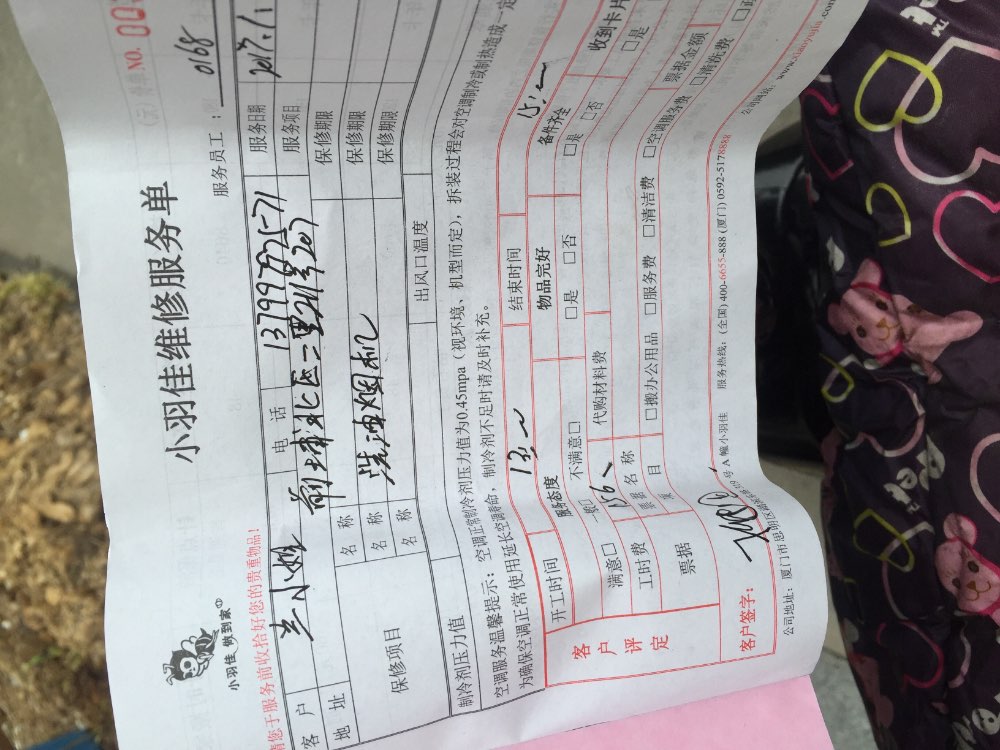 小羽佳维修服务单
小羽佳 做到家
NO. 00
服务员工： 0168
请您于服务前收拾好您的贵重物品！
客户 兰小姐 电话 13799792571 服务日期 2017.1.1
地址 前埔北区二里 207 服务项目
保修项目 名称 洗油烟机 保修期限
名称 保修期限
名称 保修期限
制冷剂压力值 出风口温度
空调服务温馨提示：空调正常制冷剂压力值为0.45mpa（视环境、机型而定），拆装过程会对空调制冷或制热造成一定
为确保空调正常使用延长空调寿命，制冷剂不足时请及时补充。
开工时间 结束时间
客户评定 服务态度 物品完好 备件齐全 收到卡片
满意□ 一般□ 不满意□ □是 □否 □是 □否 □是
工时费 156 代购材料费 票据金额
票据 票据名称 □搬办公用品 □服务费 □清洁费 □空调服务费 □清洗费
项目
客户签字：
公司地址：厦门市思明区 号A幢小羽佳 服务热线：(全国) 400-6655-888 (厦门) 0592-5178888 公司网站：www.xiaoyujia.com
Pet